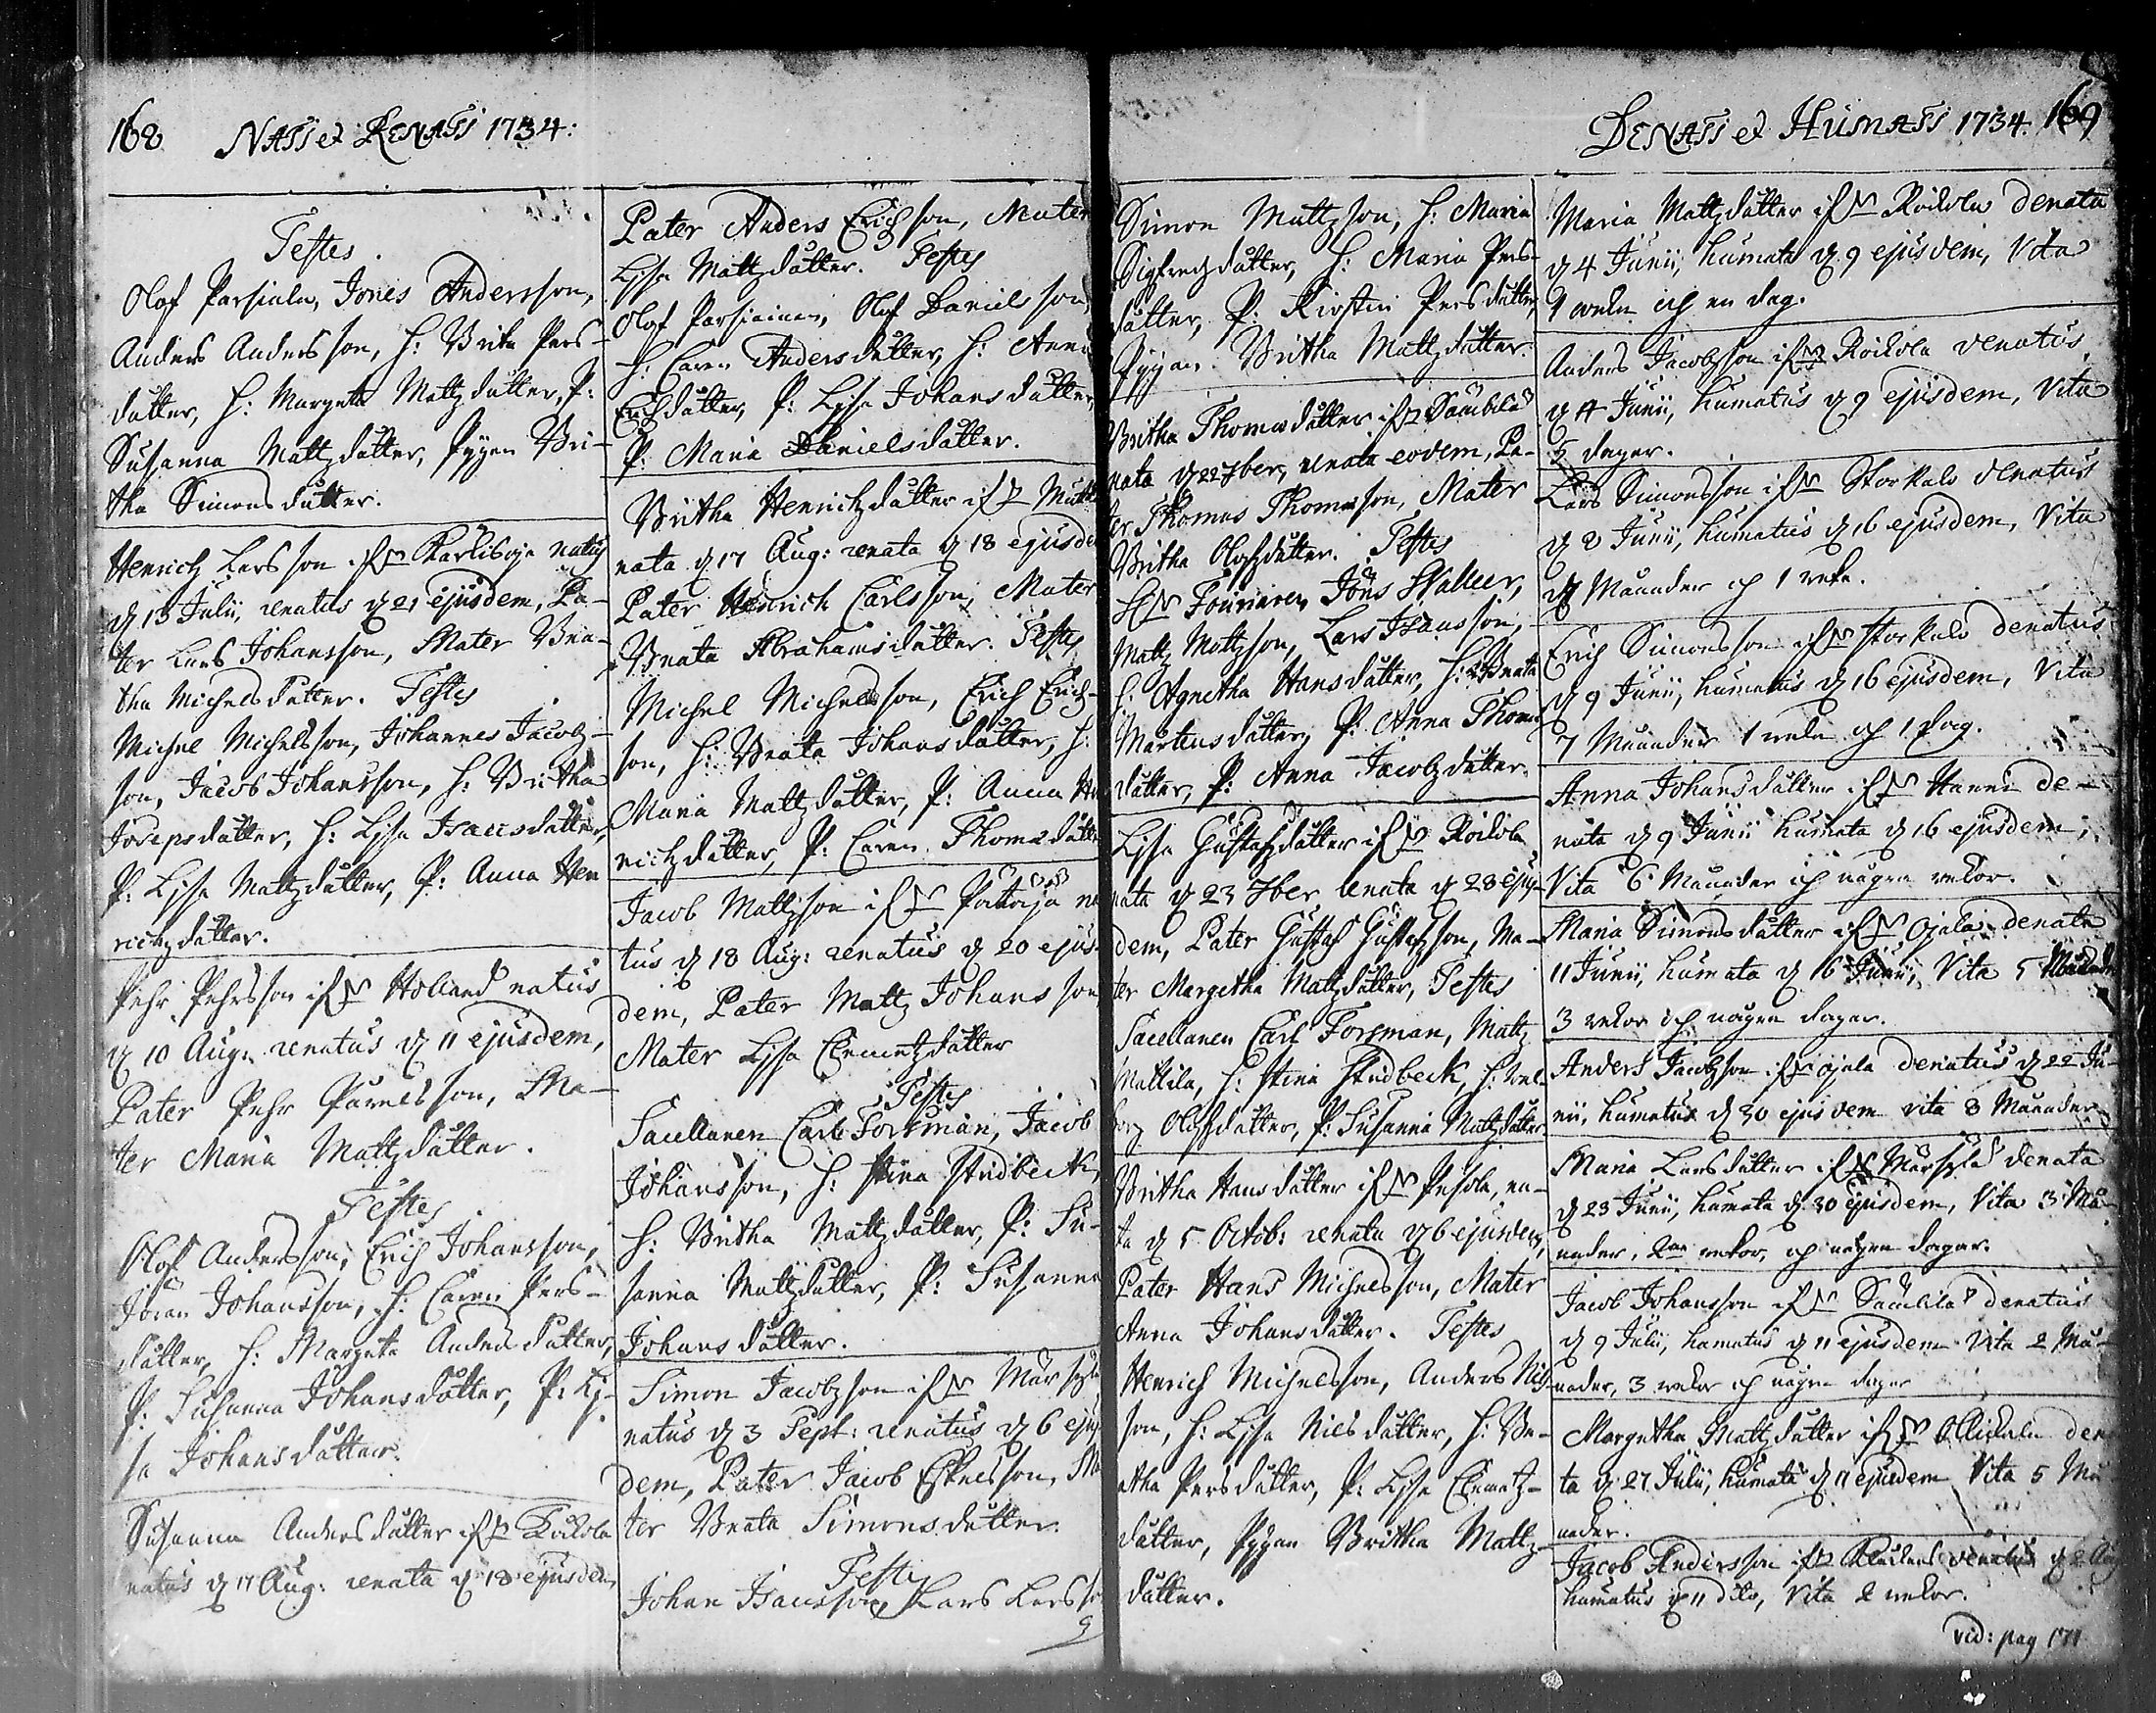 168 NATI et RENATI 1734:
Testes.
Olof Parsiala, Jöns Andersson,
Anders Andersson, H: Brita Pers-
dåtter, H: Margeta Mattzdåtter, P:
Susanna Mattzdåtter, Pigan Bri-
tha Simonsdåtter.
Henrich Larsson if Karlisoja natus
d 13 Julii, renatus d 21 ejusdem, Pa-
ter Lars Johansson, Mater Bea-
tha Michelsdåtter. Testes
Michel Michelsson, Johannes Jacobz-
son, Jacob Johansson, H: Britha
Josepsdåtter, H: Lisa Isacsdåtter,
P: Lisa Mattzdåtter, P: Anna Hen
richzdåtter.
Pehr Pehrsson if Holland natus
d 10 Aug: renatus d 11 ejusdem,
Pater Pehr Påvelsson, Ma-
ter Maria Mattzdåtter.
Testes
Olof Andersson, Erich Johansson,
Jöran Johansson, H: Caren Pers-
dåtter, H: Margeta Andersdåtter,
P: Susanna Johansdåtter, P: Li-
sa Johansdåtter.
Susanna Andersdåtter if Roikola
natus d 17 Aug: renata d 18 ejusdem
Pater Anders Erichson, Mater
Lisa Mattzdåtter. Testes
Olof Parsiainen, Olof Danielsson,
H: Caren Andersdåtter, H: Anna
Erichdåtter, P: Lisa Johansdåtter,
P: Maria Danielsdåtter.
Britha Henrichzdåtter if
nata d 17 Aug: renata d 18 ejusde
Pater Henrich Carlsson, Mater
Beata Abrahamsdåtter. Testes
Michel Michelsson, Erich Erich-
son, H: Beata Johansdåtter, H:
Maria Mattzdåtter, P: Anna He
richzdåtter, P: Caren Thomædåtte
Jacob Mattzson if Pataja na
tus d 18 Aug: renatus d 20 ejus-
dem, Pater Mattz Johansson
Mater Lisa Clemetzdåtter
Testes
Sacellanen Carl Forsman, Jacob
Johansson, H: Stina Studbeck,
H: Britha Mattzdåtter, P: Su-
sanna Mattzdåtter, P: Susanna
Johansdåtter.
Simon Jacobzson if Mårsylä
natus d 3 Sept: renatus d 6 ejus
dem, Pater Jacob Eskelsson, Ma
ter Beata Simonsdåtter.
Testes
Johan Isacsson, Lars Larsso
Simon Mattzson, H: Maria
Sigfredzdåtter, H: Maria Pers-
dåtter, P: Kirstin Persdåtter,
Pigan Britha Mattzdåtter.
Britha Thomædåtter if Såmbila
nata d 22 7ber, renata eodem, Pa-
ter Thomas Thomæson, Mater
Britha Olofzdåtter. Testes
Jöns Walleer,
Mattz Mattzson, Lars Isacsson,
H: Agnetha Hansdåtter, H: Beata
Mårtensdåtter, P: Anna Thomæ
dåtter, P: Anna Jacobzdåtter.
Lisa Gustafzdåtter if Roikola
nata d 23 7ber renata d 28 ejus-
dem, Pater Gustaf Gustafzson, Ma-
ter Margetha Mattzdåtter, Testes
Sacellanen Carl Forsman, Mattz
Mattila, H: Stina Studbeck, H: Wal-
borg Olofsdåtter, P: Susanna Mattzdåtter.
Britha Hansdåtter if Pesola, na-
ta d 5 Octob: renata d 6 ejusdem,
Pater Hans Michelsson, Mater
Anna Johansdåtter. Testes
Henrich Michelsson, Anders Nils
son, H: Lisa Nilsdåtter, H: Be-
atha Persdåtter, P: Lisa Clemetz-
dåtter, Pigan Britha Mattz-
dåtter.
DENATI et HUMATI 1734. 169
Maria Mattzdåtter if Roikola denata
d 4 Junii, humata d 9 ejusdem, Vita
1 weka och en dag.
Anders Jacobzson if Roikola denatus
d 4 Junii, humatus d 9 ejusdem, Vita
5 dagar.
Lars Simonsson if Storkalo denatus
d 8 Junii, humatus d 16 ejusdem, Vita
7 Månader och 1 weka.
Erich Simonsson if Storkalo denatus
d 9 Junii, humatus d 16 ejusdem, Vita
7 Månader 1 weka och 1 dag.
Anna Johansdåtter if Hanni de-
nata d 9 Junii humata d 16 ejusdem,
Vita 6 Månader och några wekor.
Maria Simonsdåtter if Ojala denata
11 Junii, humata d 16 Junii, Vita 5 Månader
3 wekor och några dagar.
Anders Jacobzson if Ojala denatus d 22 Ju-
nii, humatus d 30 ejusdem vita 8 Månader
Maria Larsdåtter if Mårsylä denata
d 23 Junii, humata d 30 ejusdem, Vita 3 Må-
nader, 2ne wekor, och några dagar.
Jacob Johansson if Såmbila denatus
d 9 Julii, humatus d 11 ejusdem Vita 2 Må-
nader, 3 wekor och några dagar
Margetha Mattzdåtter if Ollikala dena
ta d 27 Julii, humata d 11 ejusdem Vita 5 Må
nader.
Jacob Andersson if denatus d 2 Aug
humatus d 11 dito, Vita 2 wekor.
vid: pag 171